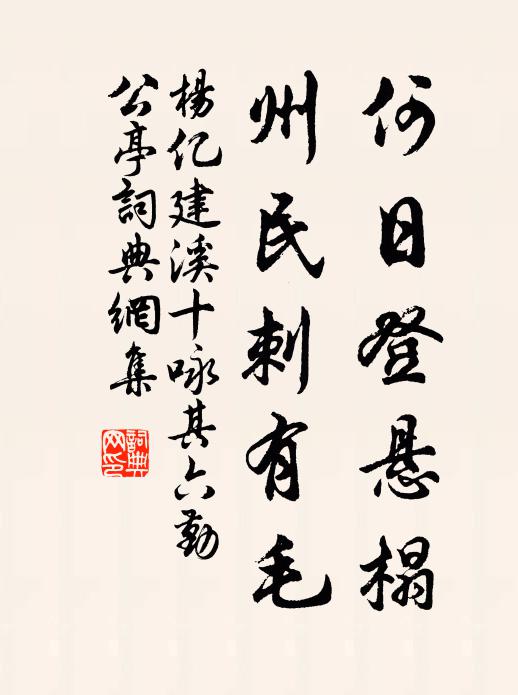 何日登悬榻
州民刺有毛
楊亿建溪十咏其六勤
公亭詞典網集
詞典网印